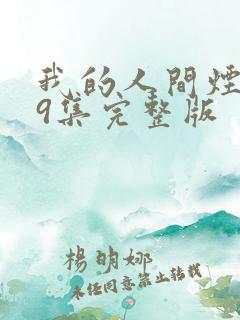 我的人间煙
9集完整版
楊明娜
未经同意禁止转载